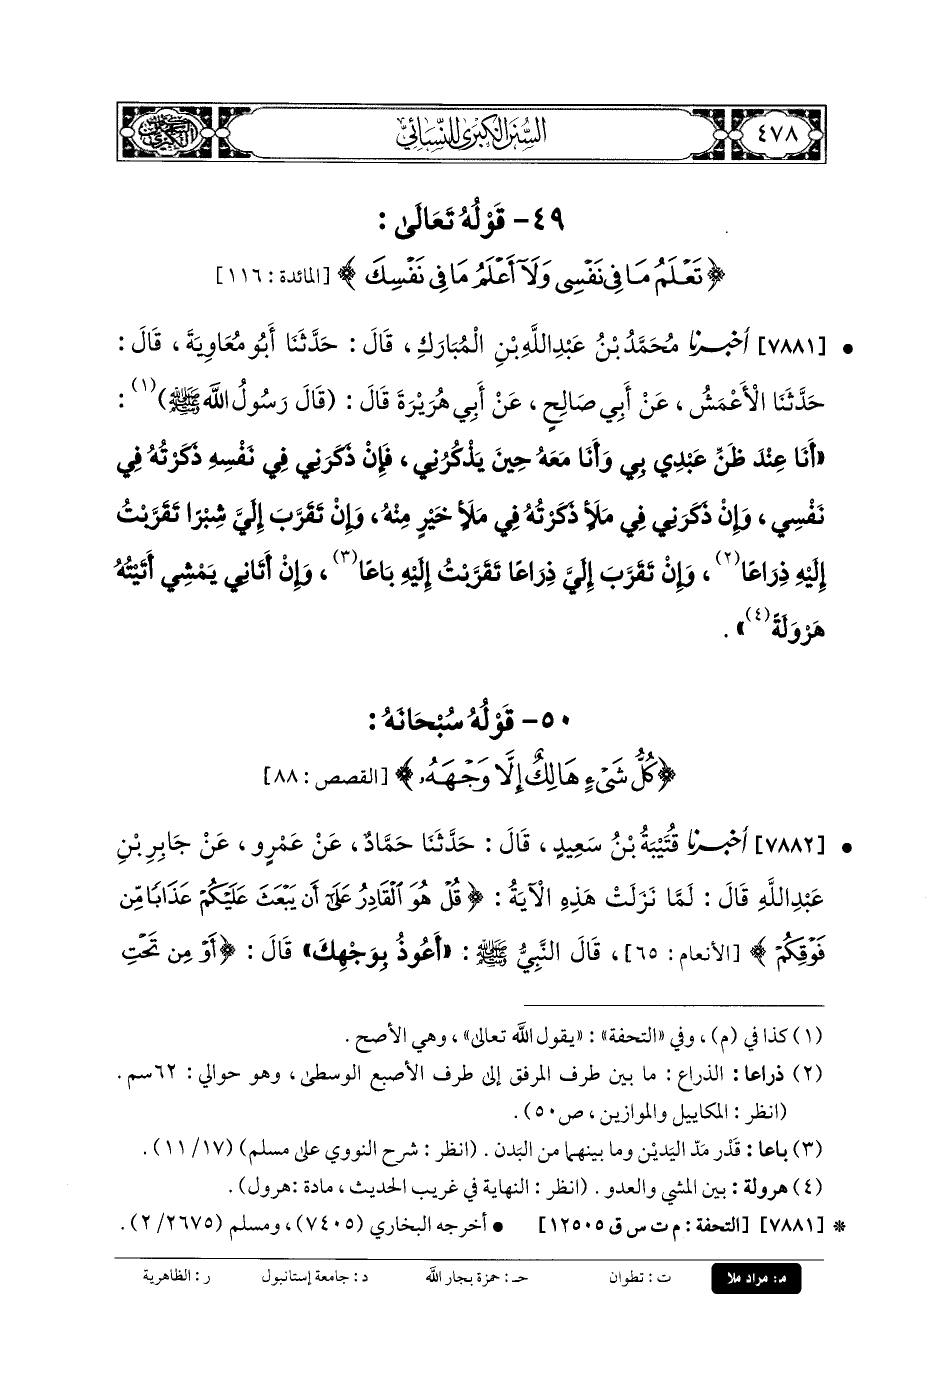 ٤٧٨
السنن الكبرى للنسائي
٤٩- قَوْلُهُ تَعَالَىٰ :
﴿ تَعْلَمُ مَا فِي نَفْسِي وَلَآ أَعْلَمُ مَا فِي نَفْسِكَ ﴾ [المائدة : ١١٦]
• [٧٨٨١] أخبرنا مُحَمَّدُ بْنُ عَبْدِاللَّهِ بْنِ الْمُبَارَكِ ، قَالَ : حَدَّثَنَا أَبُو مُعَاوِيَةَ ، قَالَ :
حَدَّثَنَا الْأَعْمَشُ ، عَنْ أَبِي صَالِحٍ ، عَنْ أَبِي هُرَيْرَةَ قَالَ : (قَالَ رَسُولُ اللَّهِ ﷺ)(١) :
«أَنَا عِنْدَ ظَنِّ عَبْدِي بِي وَأَنَا مَعَهُ حِينَ يَذْكُرُنِي ، فَإِنْ ذَكَرَنِي فِي نَفْسِهِ ذَكَرْتُهُ فِي
نَفْسِي ، وَإِنْ ذَكَرَنِي فِي مَلَأٍ ذَكَرْتُهُ فِي مَلَأٍ خَيْرٍ مِنْهُ، وَإِنْ تَقَرَّبَ إِلَيَّ شِبْرًا تَقَرَّبْتُ
إِلَيْهِ ذِرَاعًا(٢) ، وَإِنْ تَقَرَّبَ إِلَيَّ ذِرَاعًا تَقَرَّبْتُ إِلَيْهِ بَاعًا(٣) ، وَإِنْ أَتَانِي يَمْشِي أَتَيْتُهُ
هَرْوَلَةً(٤)» .
٥٠- قَوْلُهُ سُبْحَانَهُ :
﴿ كُلُّ شَيْءٍ هَالِكٌ إِلَّا وَجْهَهُۥ ﴾ [القصص : ٨٨]
• [٧٨٨٢] أخبرنا قُتَيْبَةُ بْنُ سَعِيدٍ ، قَالَ : حَدَّثَنَا حَمَّادٌ ، عَنْ عَمْرٍو ، عَنْ جَابِرِ بْنِ
عَبْدِاللَّهِ قَالَ : لَمَّا نَزَلَتْ هَذِهِ الْآيَةُ : ﴿ قُلْ هُوَ ٱلْقَادِرُ عَلَىٰٓ أَن يَبْعَثَ عَلَيْكُمْ عَذَابًا مِّن
فَوْقِكُمْ ﴾ [الأنعام : ٦٥] ، قَالَ النَّبِيُّ ﷺ : «أَعُوذُ بِوَجْهِكَ» قَالَ : ﴿ أَوْ مِن تَحْتِ
(١) كذا في (م) ، وفي «التحفة» : «يقول اللَّه تعالى» ، وهي الأصح .
(٢) ذراعا : الذراع : ما بين طرف المرفق إلى طرف الأصبع الوسطى ، وهو حوالي : ٦٢سم .
(انظر : المكاييل والموازين ، ص٥٠) .
(٣) باعا : قَدْر مَدّ اليَديْن وما بينهما من البَدن . (انظر : شرح النووي على مسلم) (١٧/ ١١) .
(٤) هرولة : بين المشي والعدو . (انظر : النهاية في غريب الحديث ، مادة :هرول) .
* [٧٨٨١] [التحفة : م ت س ق ١٢٥٠٥] • أخرجه البخاري (٧٤٠٥) ، ومسلم (٢٦٧٥/ ٢) .
م: مراد ملا ت : تطوان حـ : حمزة بجار اللَّه د : جامعة إستانبول ر : الظاهرية